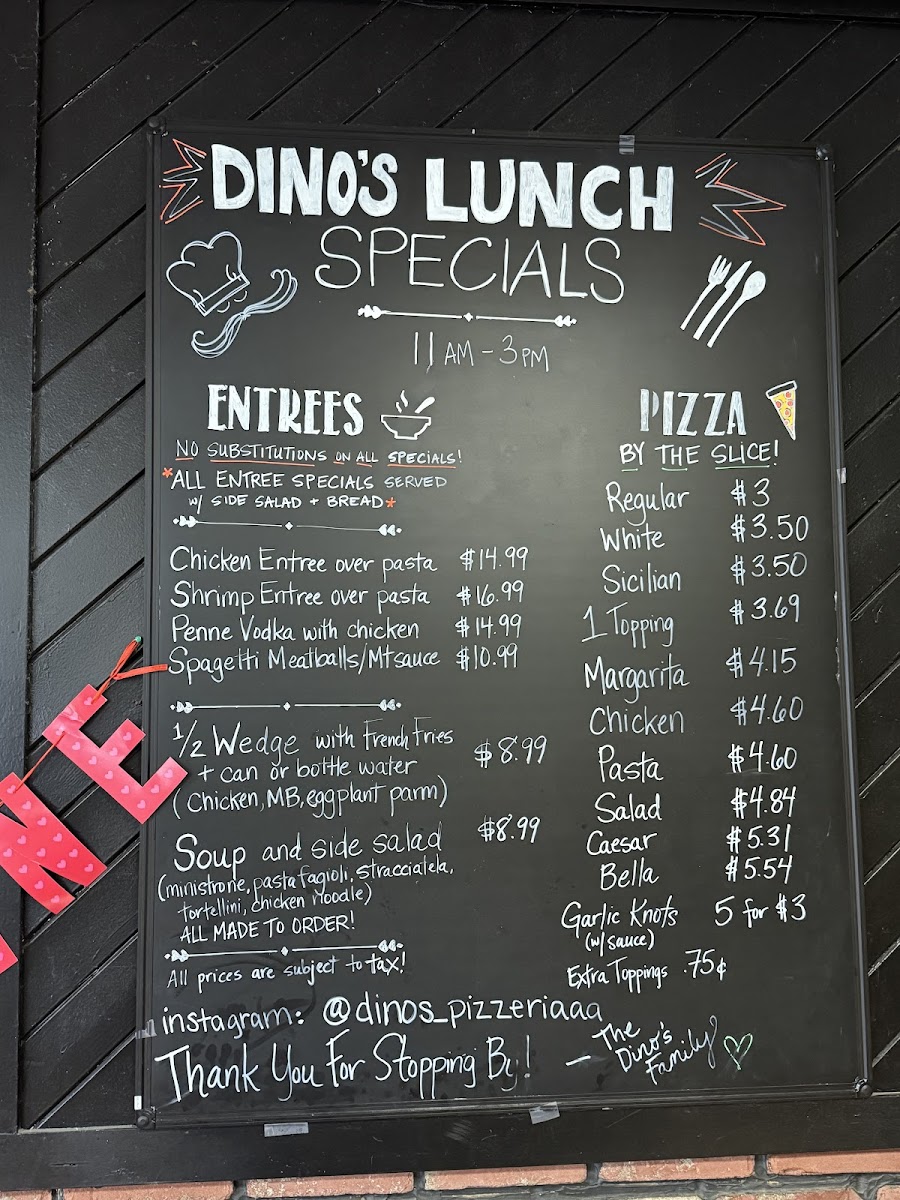 DINO'S LUNCH
SPECIALS
11 AM - 3 PM
ENTREES
NO SUBSTITUTIONS ON ALL SPECIALS!
*ALL ENTREE SPECIALS SERVED
w/ SIDE SALAD + BREAD*
Chicken Entree over pasta $14.99
Shrimp Entree over pasta $16.99
Penne Vodka with chicken $14.99
Spagetti Meatballs/Mtsauce $10.99
1/2 Wedge with French Fries $8.99
+ can or bottle water
(Chicken, MB, eggplant parm)
Soup and side salad $8.99
(ministrone, pasta fagioli, stracciatela,
tortellini, chicken noodle)
ALL MADE TO ORDER!
All prices are subject to tax!
PIZZA
BY THE SLICE!
Regular $3
White $3.50
Sicilian $3.50
1 Topping $3.69
Margarita $4.15
Chicken $4.60
Pasta $4.60
Salad $4.84
Caesar $5.31
Bella $5.54
Garlic Knots 5 for $3
(w/ sauce)
Extra Toppings .75¢
instagram: @dinos_pizzeriaaa
Thank You For Stopping By! - The
Dino's
Family
NE